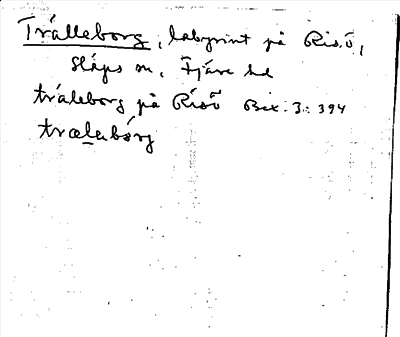 Trälleborg, labyrint på Risö,
Släps sn, Fjäre hd
träleborg på Risö Bex. 3: 394
trælabórg